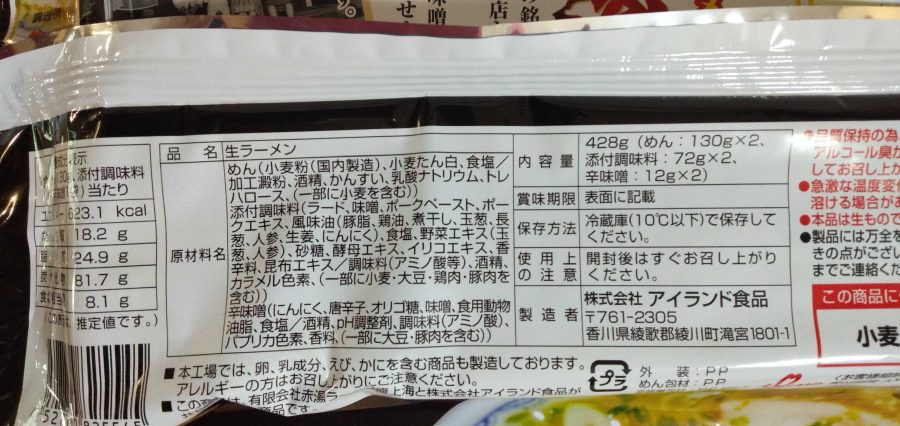 調理例
店
味噌
せ
表示
添付調味料
当たり
623.1 kcal
18.2 g
24.9 g
81.7 g
8.1 g
推定値です。)
品 名 生ラーメン
原材料名
めん(小麦粉(国内製造)、小麦たん白、食塩/
加工澱粉、酒精、かんすい、乳酸ナトリウム、トレ
ハロース、(一部に小麦を含む))
添付調味料(ラード、味噌、ポークペースト、ポー
クエキス、風味油(豚脂、鶏油、煮干し、玉葱、長
葱、人参、生姜、にんにく)、食塩、野菜エキス(玉
葱、人参)、砂糖、酵母エキス、イリコエキス、香
辛料、昆布エキス/調味料(アミノ酸等)、酒精、
カラメル色素、(一部に小麦・大豆・鶏肉・豚肉を
含む))
辛味噌(にんにく、唐辛子、オリゴ糖、味噌、食用動物
油脂、食塩/酒精、pH調整剤、調味料(アミノ酸)、
パプリカ色素、香料、(一部に大豆・豚肉を含む))
内 容 量
428g(めん:130g×2、
添付調味料:72g×2、
辛味噌:12g×2)
賞味期限 表面に記載
保存方法
冷蔵庫(10℃以下)で保存して
ください。
使 用 上
の 注 意
開封後はすぐお召し上がり
ください。
製 造 者
株式会社 アイランド食品
〒761-2305
香川県綾歌郡綾川町滝宮1801-1
■本工場では、卵、乳成分、えび、かにを含む商品も製造しております。
アレルギーの方はお召し上がりにご注意ください。
プラ
外装:PP
めん包材:PP
●品質保持の為
アルコール臭が
してお召し上が
●急激な温度変化
溶ける場合があ
●本品は生もので
●製品には万全を
きの点がござい
までご連絡くだ
この商品に
小麦